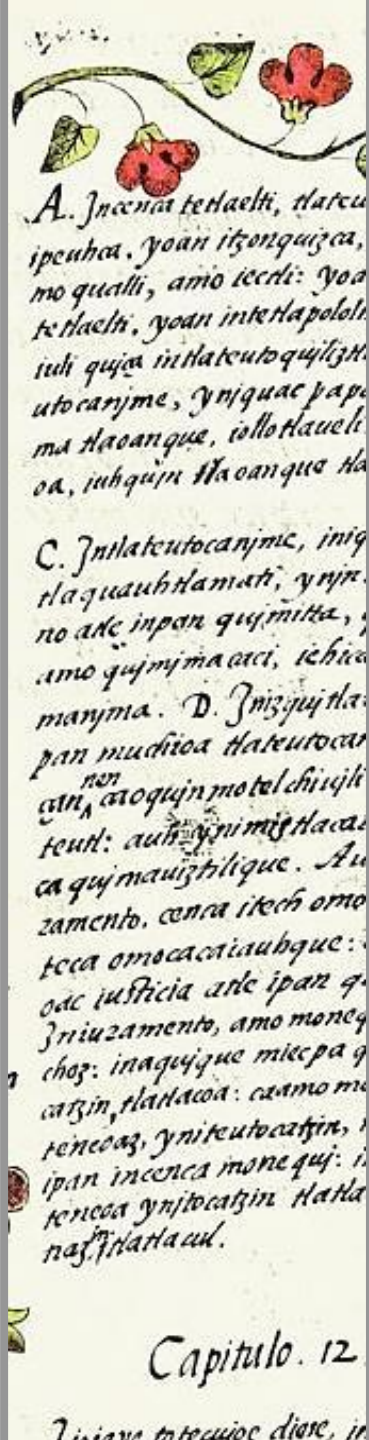 A. Jncenca tetlaelti, tlateu
ipeuhca. yoan itzonquizca,
mo qualli, amo iectli: yoa
tetlaelti, yoan intetlapolol
iuli quiça intlateutoquiliztl
utocanjme, ynjquac papa
ma tlaoanque, iollotlaueli
oa, iuhqujn tlaoanque tla
C. Jntlateutocanjme, iniq
tlaquauhtlamati, ynjn
no atle inpan qujmitta,
amo qujmjmacaci, iehica
manjma. D. Jnizquj tla
pan muchioa tlateutocan
çan, nen aaoqujn motelchiujli
teutl: auh ynimixtlacal
ca qujmauiztilique. Au
zamento. cenca itech omo
teca omocacaiauhque:
oac iusticia atle ipan q
Jniuzamento, amo moneq
choz: inaqujque miecpa q
catzin, tlatlacoa: caamo mo
teneoaz, yniteutocatzin,
ipan incenca monequj: i
teneoa ynjtocatzin tlatla
naz, in tlatlacul.
Capitulo. 12